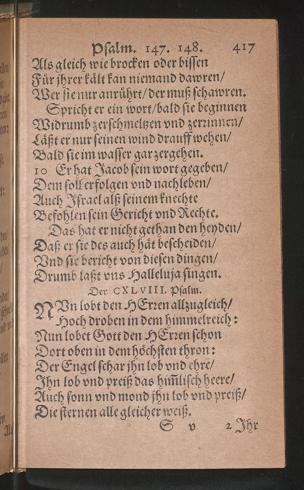 Psalm. 147. 148. 417
Als gleich wie brocken oder bissen
Für jhrer kält kan niemand dawren/
Wer sie nur anrührt/ der muß schawren.
Spricht er ein wort/ bald sie beginnen
Widrumb zerschmeltzen vnd zerrinnen/
Läßt er nur seinen wind drauff wehen/
Bald sie im wasser gar zergehen.
10 Er hat Jacob sein wort gegeben/
Dem soll erfolgen vnd nachleben/
Auch Israel alß seinem knechte
Befohlen sein Gericht vnd Rechte.
Das hat er nicht gethan den heyden/
Daß er sie des auch hät bescheiden/
Vnd sie bericht von diesen dingen/
Drumb laßt vns Halleluja singen.
Der CXLVIII. Psalm.
NVn lobt den HErren allzugleich/
Hoch droben in dem himmelreich:
Nun lobet Gott den HErren schon
Dort oben in dem höchsten thron:
Der Engel schar jhn lob vnd ehre/
Jhn lob vnd preiß das him̃lisch heere/
Auch sonn vnd mond jhn lob vnd preiß/
Die sternen alle gleicher weiß.
S v 2 Jhr